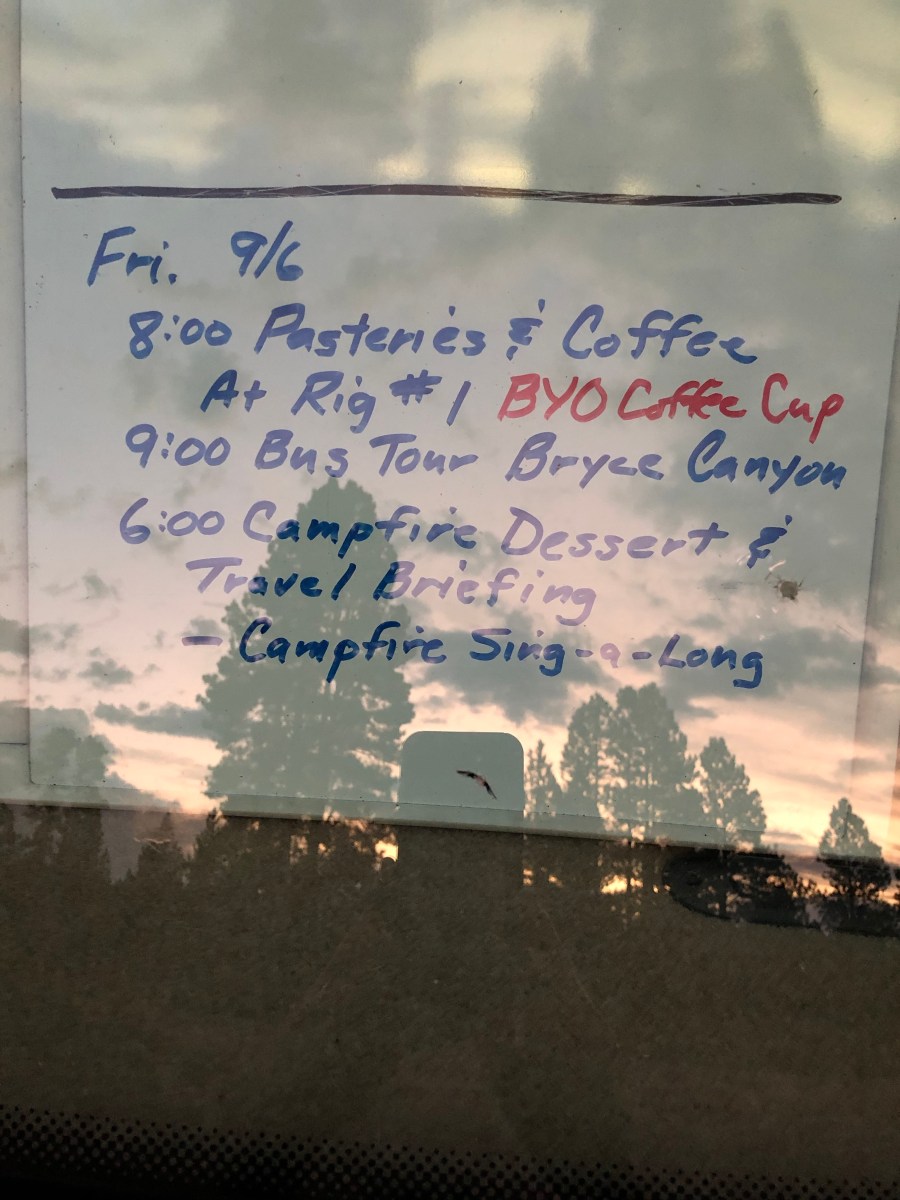 Fri. 9/6
8:00 Pasteries & Coffee
At Rig #1 BYO Coffee Cup
9:00 Bus Tour Bryce Canyon
6:00 Campfire Dessert &
Travel Briefing
- Campfire Sing-a-Long